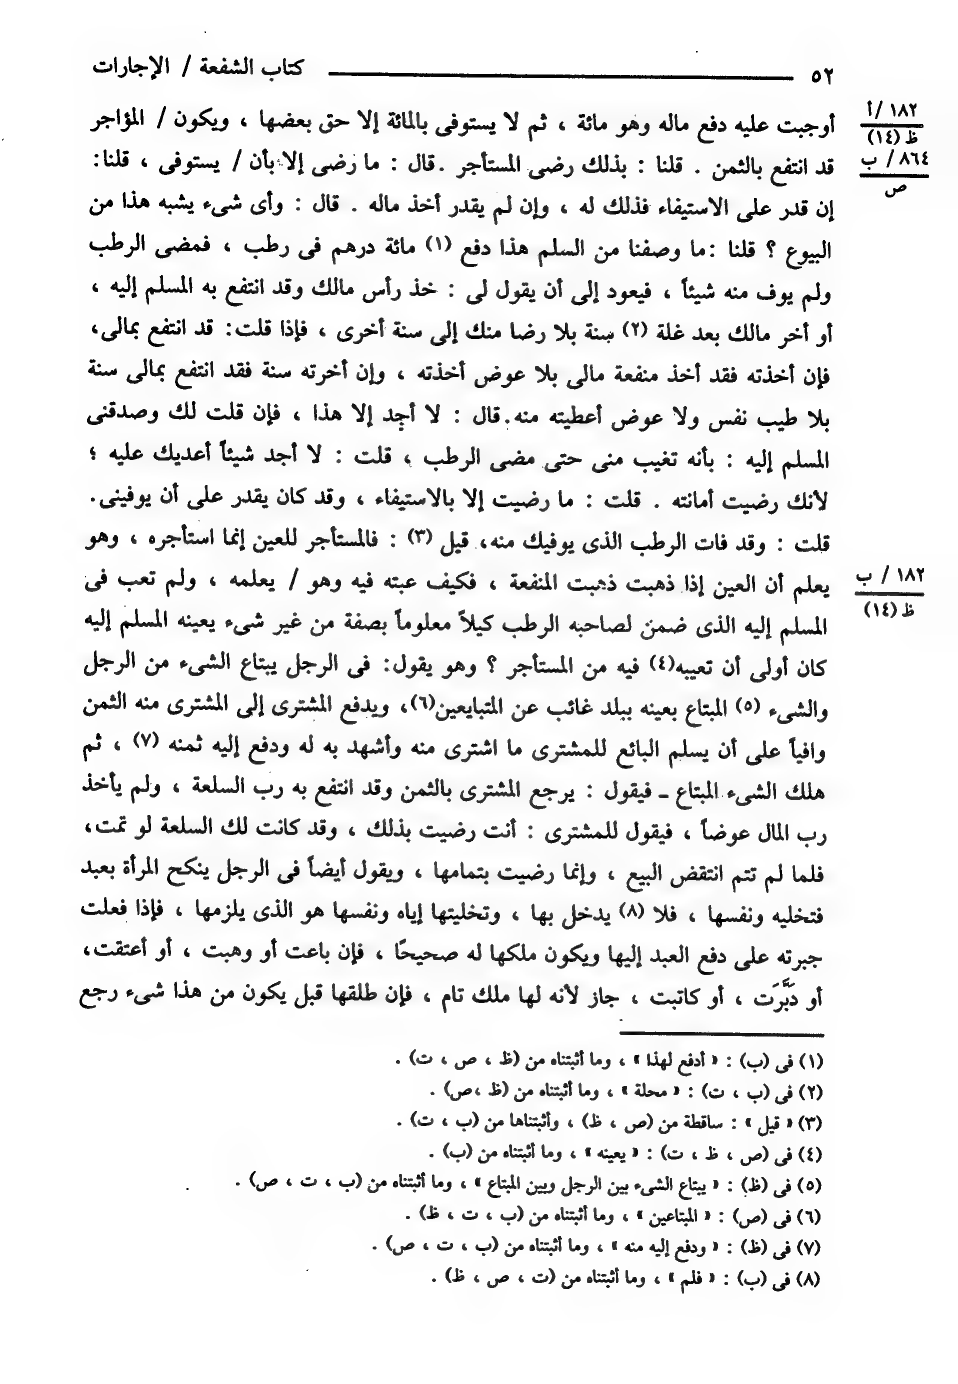 ٥٢ ــــــــــــــــ كتاب الشفعة / الإجارات
١٨٢ /أ
ظ (١٤)
٨٦٤ / ب
ص
أوجبت عليه دفع ماله وهو مائة ، ثم لا يستوفى بالمائة إلا حق بعضها ، ويكون / المؤاجر
قد انتفع بالثمن . قلنا : بذلك رضى المستأجر . قال : ما رضى إلا بأن / يستوفى ، قلنا:
إن قدر على الاستيفاء فذلك له ، وإن لم يقدر أخذ ماله . قال : وأى شىء يشبه هذا من
البيوع ؟ قلنا :ما وصفنا من السلم هذا دفع (١) مائة درهم فى رطب ، فمضى الرطب
ولم يوف منه شيئاً ، فيعود إلى أن يقول لى : خذ رأس مالك وقد انتفع به المسلم إليه ،
أو أخر مالك بعد غلة (٢) سنة بلا رضا منك إلى سنة أخرى ، فإذا قلت: قد انتفع بمالى،
فإن أخذته فقد أخذ منفعة مالى بلا عوض أخذته ، وإن أخرته سنة فقد انتفع بمالى سنة
بلا طيب نفس ولا عوض أعطيته منه. قال : لا أجد إلا هذا ، فإن قلت لك وصدقنى
المسلم إليه : بأنه تغيب منى حتى مضى الرطب ، قلت : لا أجد شيئاً أعديك عليه ؛
لأنك رضيت أمانته . قلت : ما رضيت إلا بالاستيفاء ، وقد كان يقدر على أن يوفينى.
قلت : وقد فات الرطب الذى يوفيك منه، قيل (٣) : فالمستأجر للعين إنما استأجره ، وهو
يعلم أن العين إذا ذهبت ذهبت المنفعة ، فكيف عبته فيه وهو / يعلمه ، ولم تعب فى
١٨٢ / ب
ظ (١٤)
المسلم إليه الذى ضمن لصاحبه الرطب كيلاً معلوماً بصفة من غير شىء يعينه المسلم إليه
كان أولى أن تعيبه(٤) فيه من المستأجر ؟ وهو يقول: فى الرجل يبتاع الشىء من الرجل
والشىء (٥) المبتاع بعينه ببلد غائب عن المتبايعين(٦)، ويدفع المشترى إلى المشترى منه الثمن
وافياً على أن يسلم البائع للمشترى ما اشترى منه وأشهد به له ودفع إليه ثمنه (٧) ، ثم
هلك الشىء المبتاع ــ فيقول : يرجع المشترى بالثمن وقد انتفع به رب السلعة ، ولم يأخذ
رب المال عوضاً ، فيقول للمشترى : أنت رضيت بذلك ، وقد كانت لك السلعة لو تمت،
فلما لم تتم انتقض البيع ، وإنما رضيت بتمامها ، ويقول أيضاً فى الرجل ينكح المرأة بعبد
فتخليه ونفسها ، فلا (٨) يدخل بها ، وتخليتها إياه ونفسها هو الذى يلزمها ، فإذا فعلت
جبرته على دفع العبد إليها ويكون ملكها له صحيحًا ، فإن باعت أو وهبت ، أو أعتقت،
أو دَبَّرَت ، أو كاتبت ، جاز لأنه لها ملك تام ، فإن طلقها قبل يكون من هذا شىء رجع
(١) فى (ب) : « أدفع لهذا » ، وما أثبتناه من (ظ ، ص ، ت) .
(٢) فى (ب ، ت) : « محلة » ، وما أثبتناه من (ظ ،ص) .
(٣) « قيل » : ساقطة من (ص ، ظ) ، وأثبتناها من (ب ، ت) .
(٤) فى (ص ، ظ ، ت) : « يعينه » ، وما أثبتناه من (ب) .
(٥) فى (ظ) : « يبتاع الشىء بين الرجل وبين المبتاع » ، وما أثبتناه من (ب ، ت ، ص) .
(٦) فى (ص) : « المبتاعين » ، وما أثبتناه من (ب ، ت ، ظ) .
(٧) فى (ظ) : « ودفع إليه منه » ، وما أثبتناه من (ب ، ت ، ص) .
(٨) فى (ب) : « فلم » ، وما أثبتناه من (ت ، ص ، ظ) .